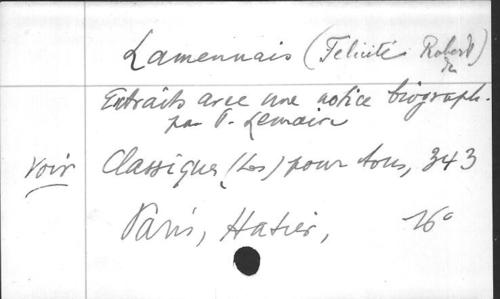 Lamennais (Félicité Robert)
de
Extraits avec une notice biograph.
par P. Lemaire
voir Classiques (Les) pour tous, 343
Paris, Hatier, 16°